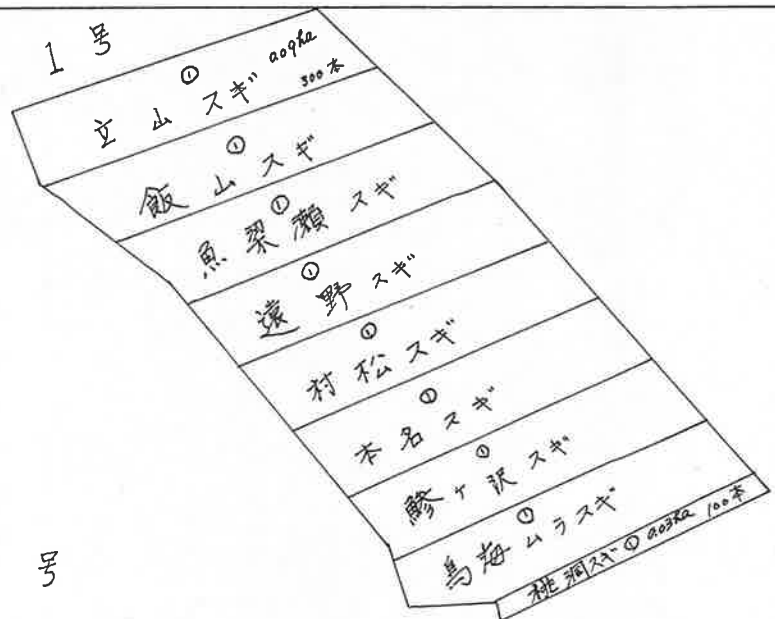 1号
①
立山スギ 0.09ha
300本
①
飯山スギ
①
魚梁瀬スギ
①
遠野スギ
①
村松スギ
①
本名スギ
①
鰺ヶ沢スギ
①
鳥海ムラスギ
桃洞スギ ① 0.03ha 100本
号